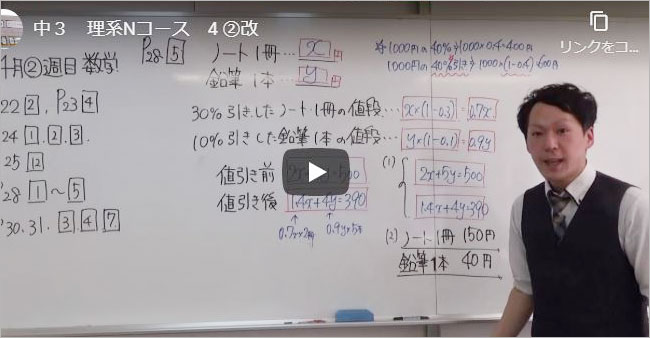 中３　理系Nコース　４②改
リンクをコ...
4月②週目 数学
22 2 , P23 4
24 1 . 2 . 3 .
25 12
28 1 ～ 5
30.31. 3 4 7
P28 5
ノート1冊…x円
鉛筆1本…y円
※1000円の40%→1000×0.4=400円
1000円の40%引き→1000×(1-0.4)=600円
30%引きしたノート1冊の値段…x×(1-0.3)=0.7x
10%引きした鉛筆1本の値段…y×(1-0.1)=0.9y
値引き前
=500
値引き後 1.4x+4y=390
0.7x×2冊
0.9y×5本
(1)
2x+5y=500
1.4x+4y=390
(2) ノート1冊 150円
鉛筆1本 40円